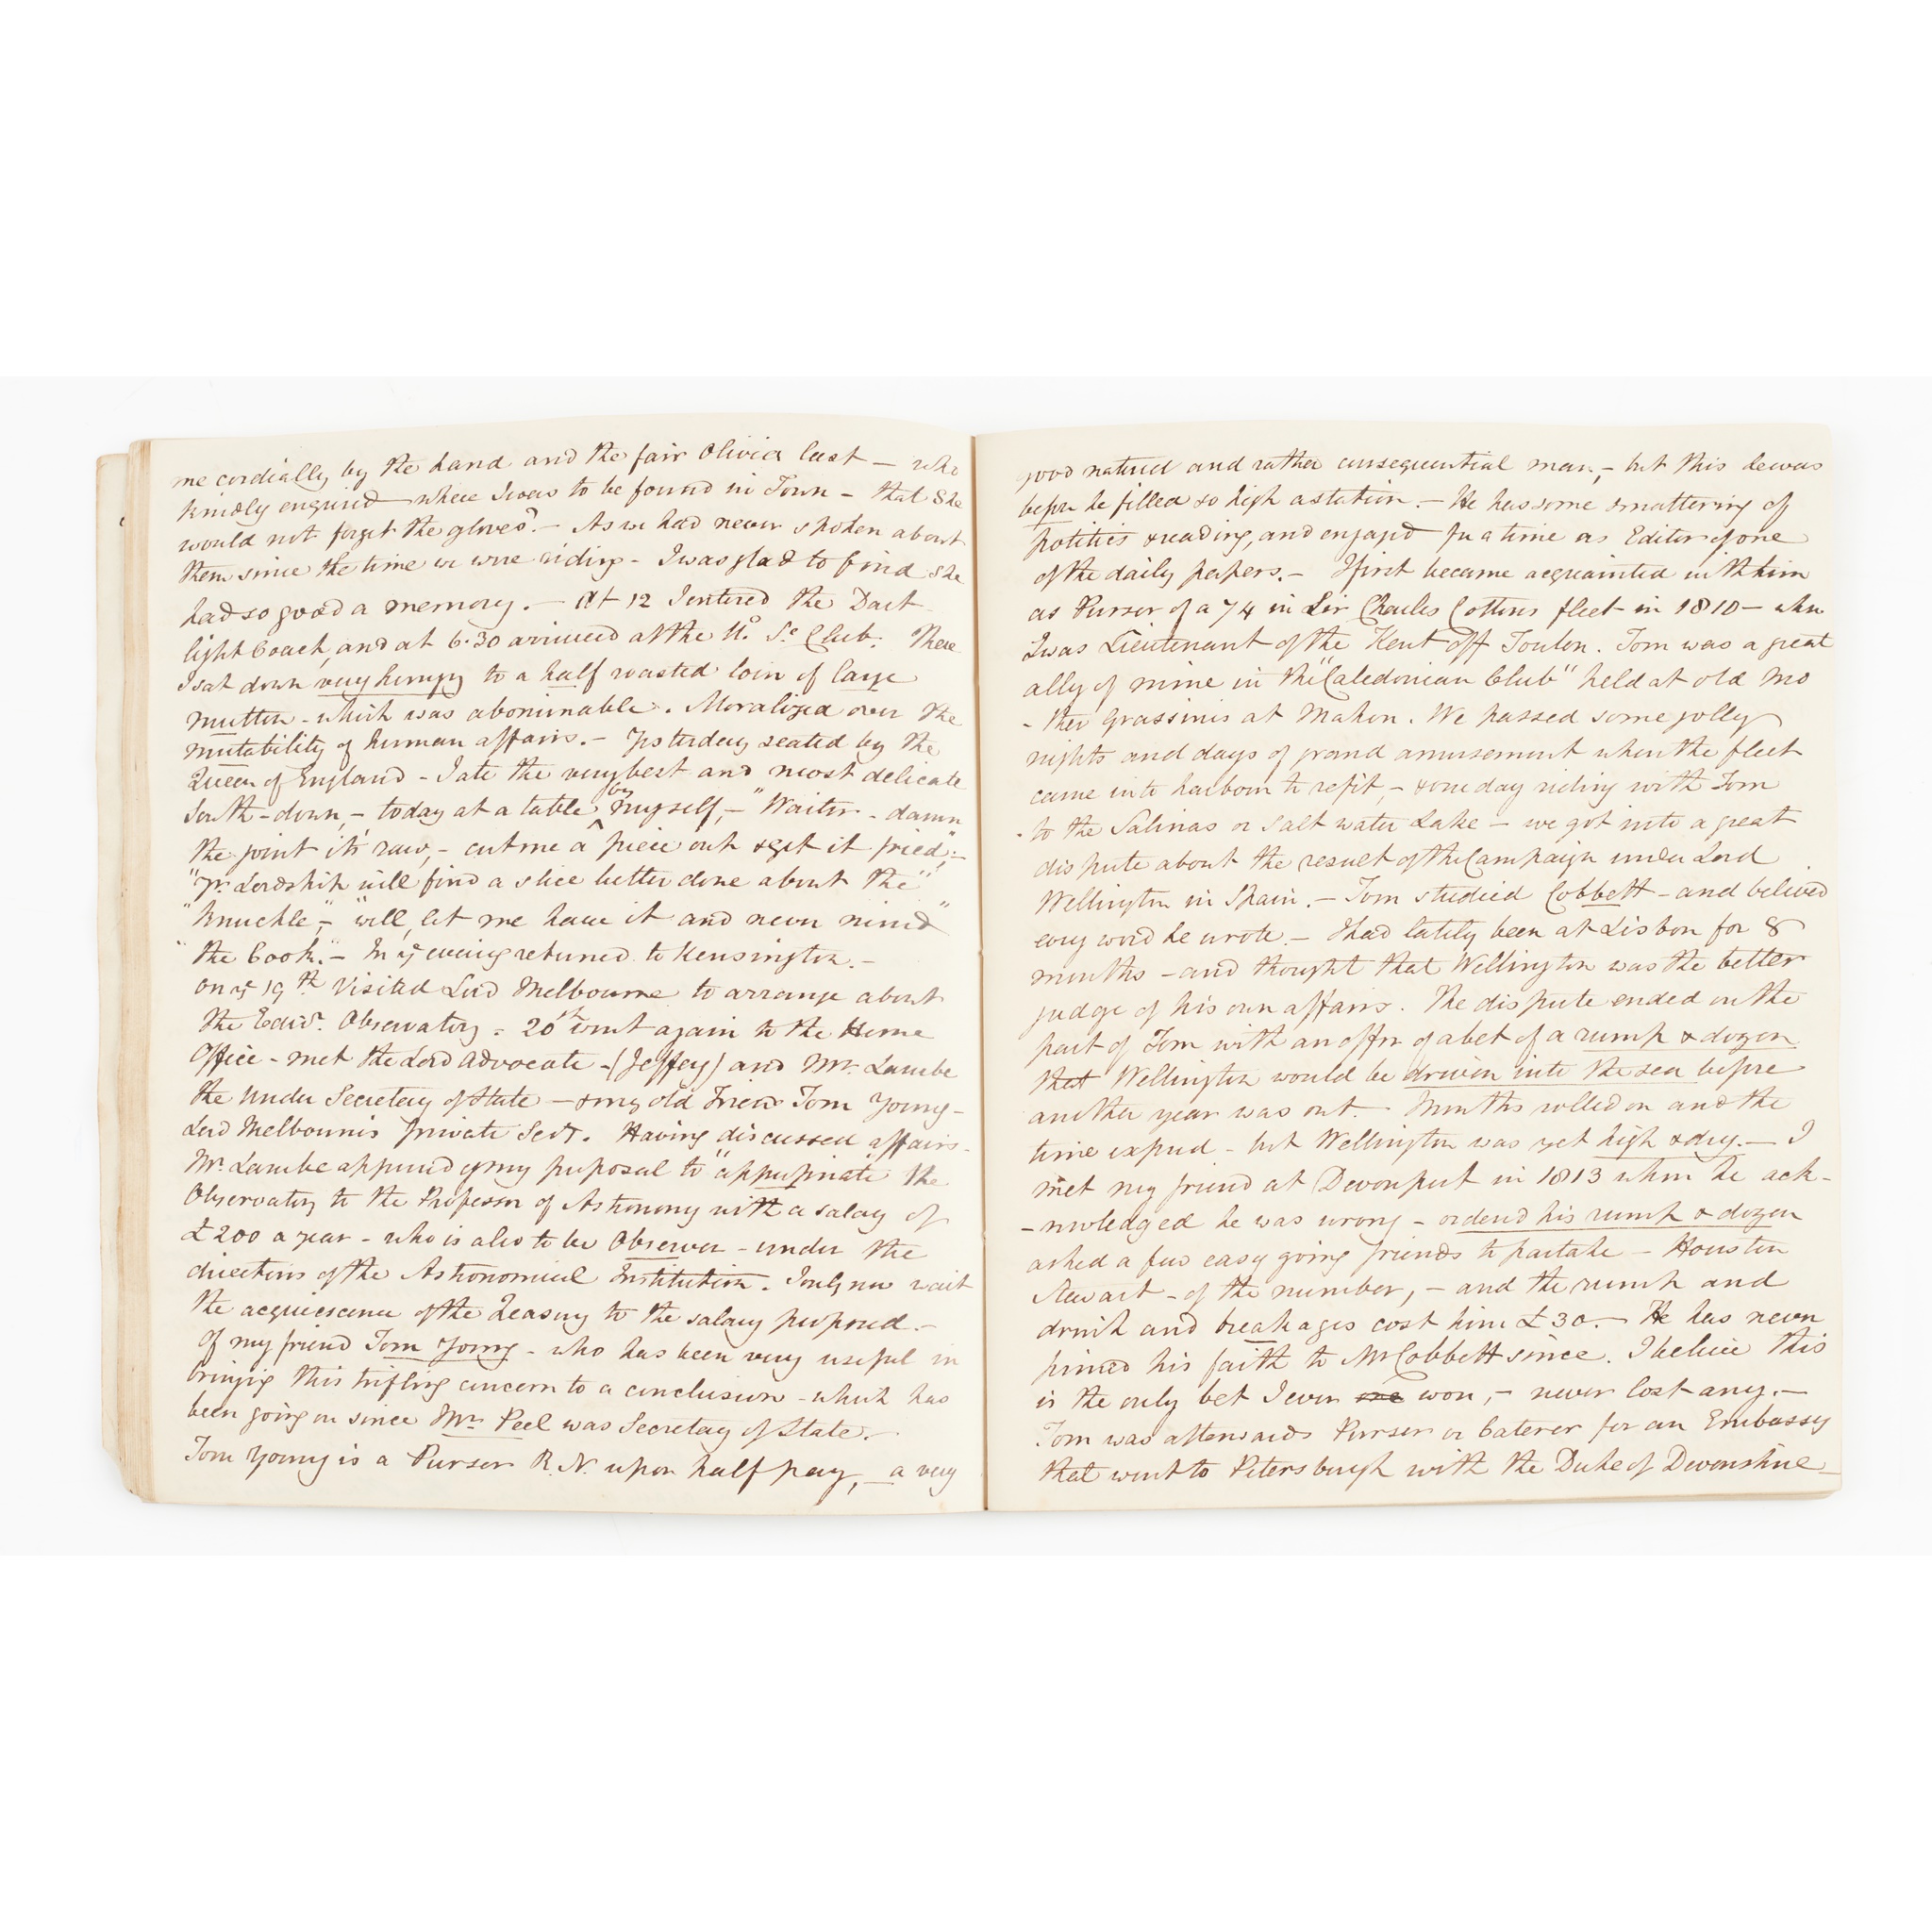 me cordially by the hand and the fair Olivia last — who
kindly enquired where I was to be found in Town – that She
would not forget the gloves? — As we had never spoken about
them since the time we were riding – I was glad to find she
had so good a memory. — At 12 I entered the Dart
light Coach, and at 6·30 arrived at the Uᵈ. Sᵉ Club. There
I sat down very hungry to a half roasted loin of large
mutton – which was abominable. Moralized over the
mutability of human affairs. – Yesterday seated by the
Queen of England – I ate the very best and most delicate
South-down, – today at a table by myself, – "Waiter – damn
the joint it's raw, – cut me a piece out & get it fried", –
"Yʳ Lordship will find a slice better done about the"
"Knuckle", – "will, let me have it and never mind"
"the Cook." – In yᵉ evening returned to Kensington. –
On yᵉ 19ᵗʰ Visited Lord Melbourne to arrange about
the Edinʳ. Observatory. 20ᵗʰ went again to the Home
Office – met the Lord Advocate – (Jeffey) and Mʳ. Lambe
the Under Secretary of State — & my old Friend Tom Young –
Lord Melbourne's private Secʸ. Having discussed affairs –
Mʳ. Lambe approved of my proposal to "appropriate" the
Observatory to the Professor of Astronomy with a salary of
£200 a year – who is also to be Observer – under the
directions of the Astronomical Institution. I only now wait
the acquiescence of the Treasury to the salary proposed. –
Of my friend Tom Young – who has been very useful in
bringing this trifling concern to a conclusion – which has
been going on since Mʳ Peel was Secretary of State. –
Tom Young is a Purser R.N. upon half pay, — a very
good natured and rather consequential man, – but this he was
before he filled so high a station. — He has some smattering of
politics & reading, and engaged for a time as Editor of one
of the daily papers. – I first became acquainted with him
as Purser of a 74 in Sir Charles Cottons fleet in 1810 – when
I was Lieutenant of the Kent off Toulon. Tom was a great
ally of mine in the "Caledonian Club" held at old Mo
- ther Grassinis at Mahon. We passed some jolly
nights and days of grand amusement when the fleet
came into harbour to refit, – & one day riding with Tom
to the Salinas or Salt water Lake — we got into a great
dispute about the result of the Campaign under Lord
Wellington in Spain. — Tom studied Cobbett – and believed
every word he wrote. – I had lately been at Lisbon for 8
months – and thought that Wellington was the better
judge of his own affairs. The dispute ended on the
part of Tom with an offer of a bet of a rump & dozen
that Wellington would be driven into the sea before
another year was out. – Months rolled on and the
time expired – but Wellington was yet high & dry. — I
met my friend at Devonport in 1813 when he ack-
- nowledged he was wrong – ordered his rump & dozen
asked a few easy going friends to partake – Houston
Stewart – of the number, – and the rump and
drink and breakages cost him £30. — He has never
pinned his faith to Mʳ Cobbett since. I believe this
is the only bet I ever won, – never lost any. –
Tom was afterwards Purser or Caterer for an Embassy
that went to Petersburgh with the Duke of Devonshire